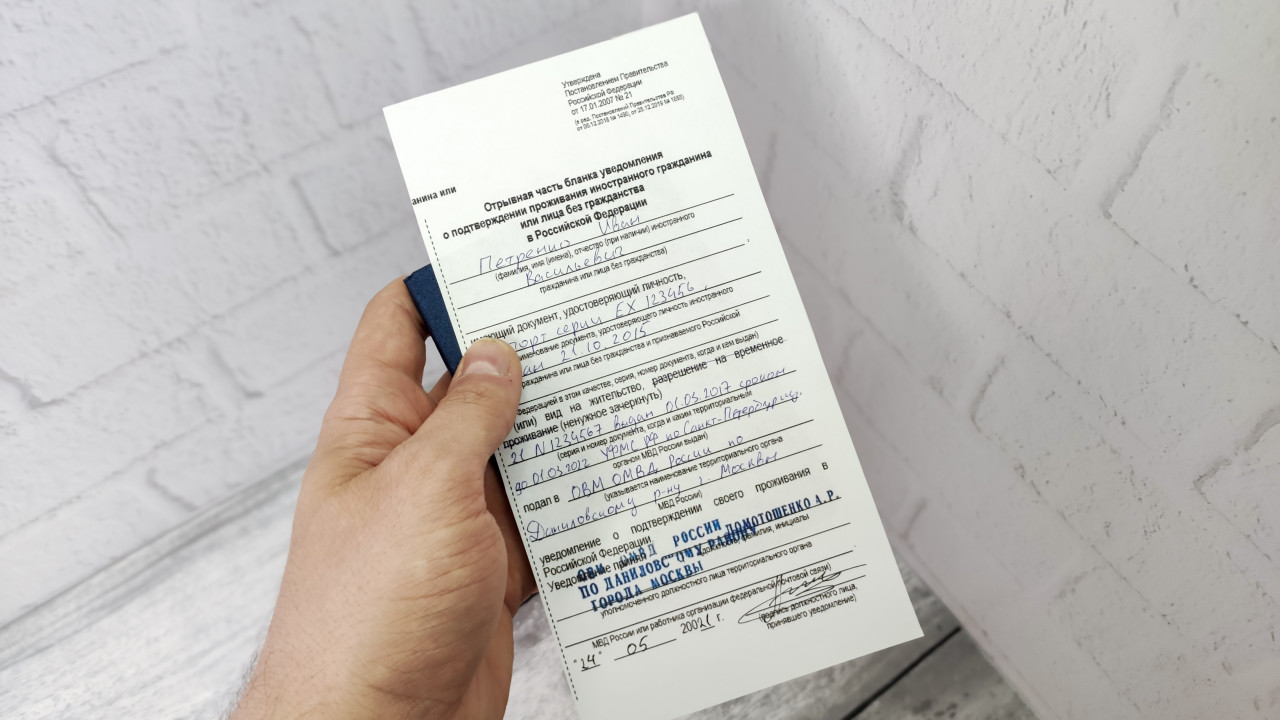 Утверждена
Постановлением Правительства
Российской Федерации
от 17.01.2007 № 21
(в ред. Постановлений Правительства РФ
анина или
Отрывная часть бланка уведомления
о подтверждении проживания иностранного гражданина
или лица без гражданства
в Российской Федерации
Петренко Иван
(фамилия, имя (имена), отчество (при наличии) иностранного
Васильевич
гражданина или лица без гражданства)
имеющий документ, удостоверяющий личность,
порт серии ЕХ 123456,
именование документа, удостоверяющего личность иностранного
ан 21.10.2015
гражданина или лица без гражданства и признаваемого Российской
Федерацией в этом качестве, серия, номер документа, когда и кем выдан)
(или) вид на жительство, разрешение на временное
проживание (ненужное зачеркнуть)
21 N 1234567 выдан 01.03.2017 сроком
(серия и номер документа, когда и каким территориальным
до 01.03.2022 УФМС РФ по Санкт-Петербургу.
органом МВД России выдан)
подал в ОВМ ОМВД России по
(указывается наименование территориального органа
Даниловскому р-ну г. Москвы
МВД России)
уведомление о подтверждении своего проживания в
Российской Федерации
Уведомление
ОВМ ОМВД РОССИИ ДОМОТОШЕНКО А.Р.
фамилия, инициалы
ПО ДАНИЛОВСКОМУ РАЙОНУ
ГОРОДА МОСКВЫ
уполномоченного должностного лица территориального органа
МВД России или работника организации федеральной почтовой связи)
"24" 05 20021 г.
(подпись должностного лица,
принявшего уведомление)